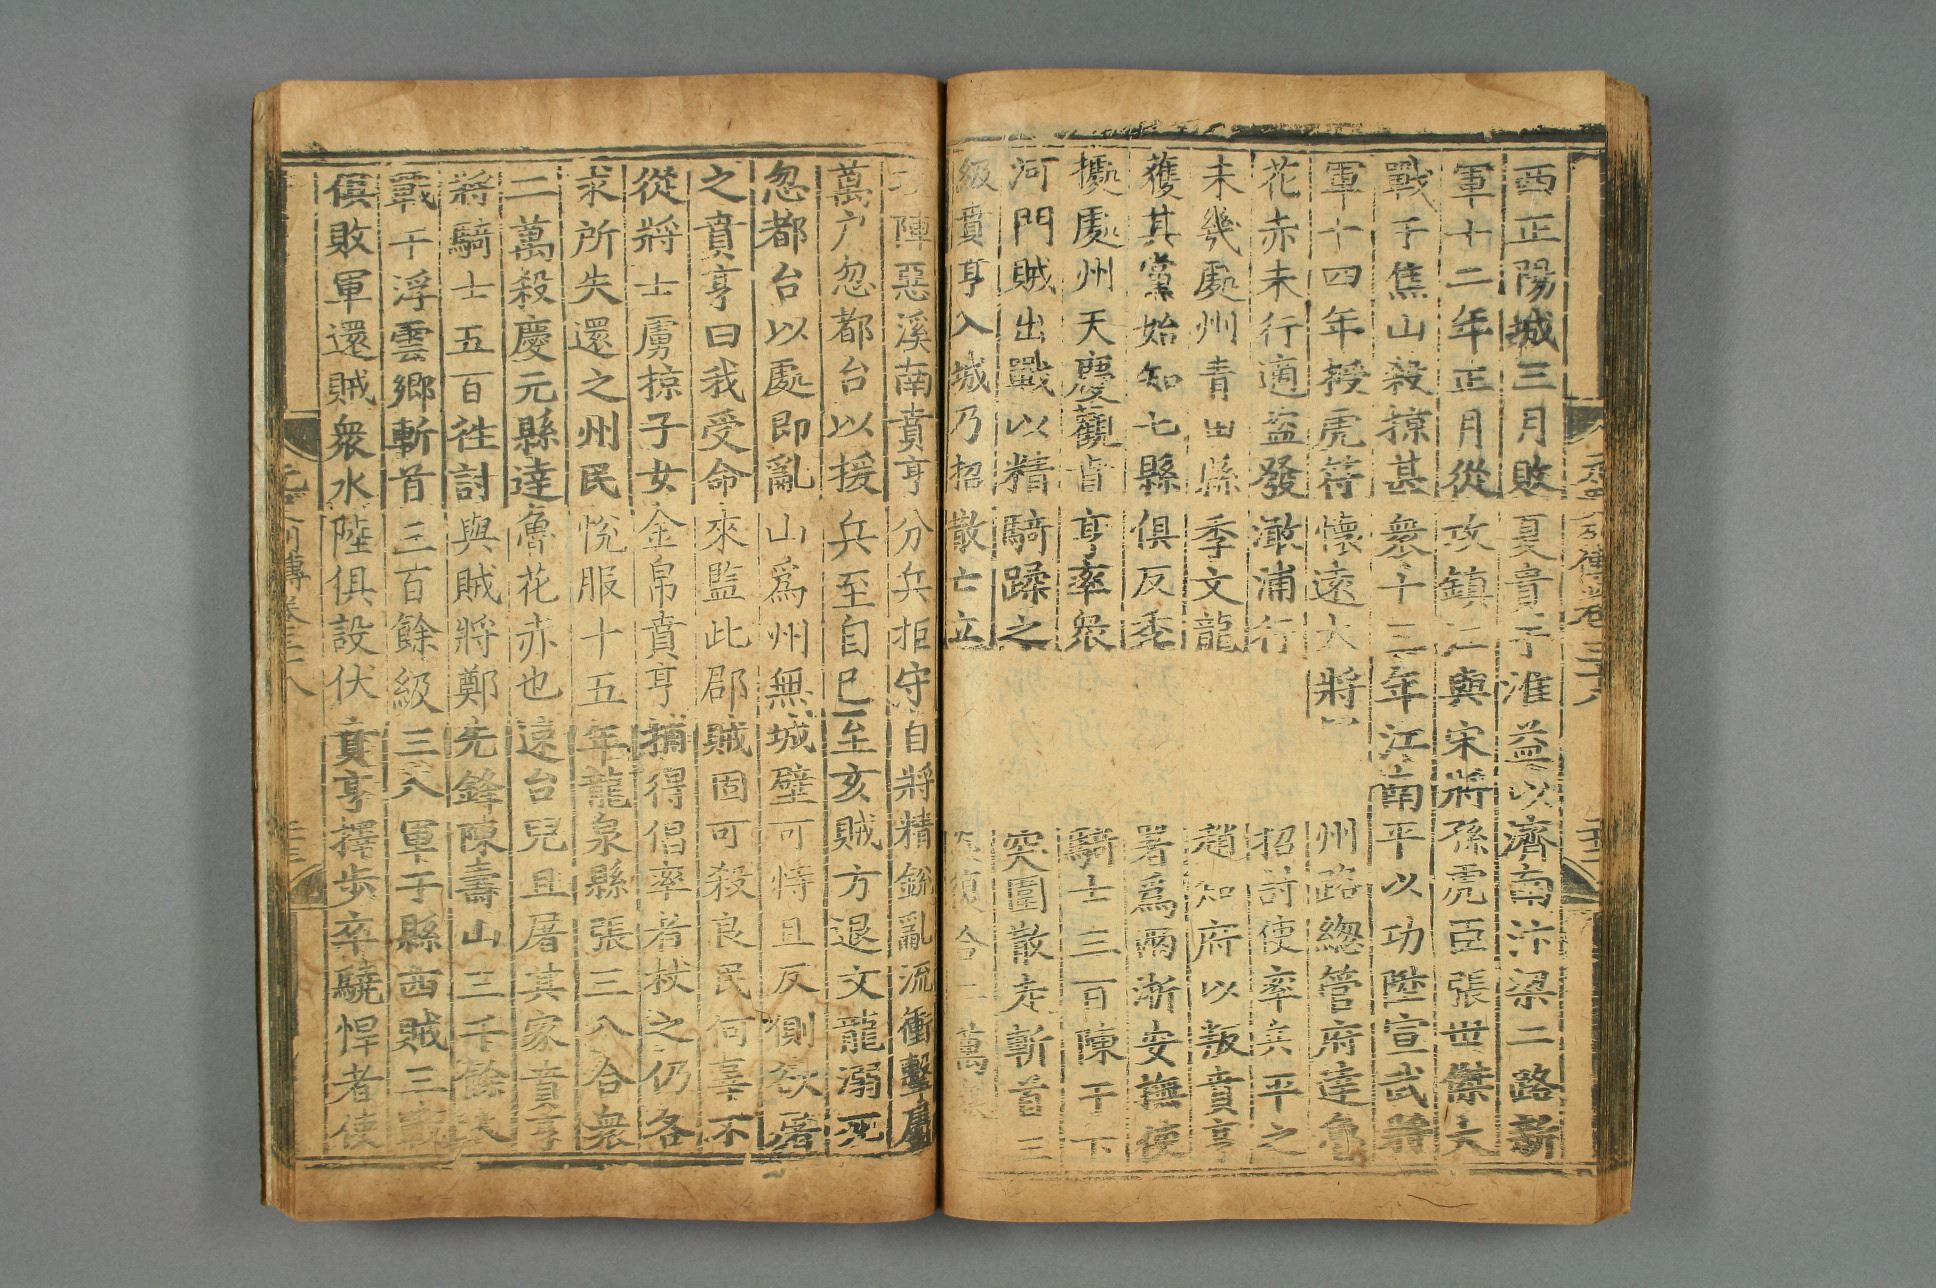 西正陽城三月敗夏貴于淮益以濟南汴梁二路新
軍十二年正月從攻鎮江與宋將孫虎臣張世傑大
戰于焦山殺掠甚衆十三年江南平以功陞宣武將
軍十四年授虎符懷遠大將軍 州路總管府達魯
花赤未行適盜發澉浦行 招討使率兵平之
未幾處州青田縣季文龍 趙知府以叛賁亨
獲其黨始知七縣俱反季 署爲兩浙安撫使
據處州天慶觀賁亨率衆 騎士三百陳于下
河門賊出戰以精騎蹂之 突圍散走斬首三
級賁亨入城乃招散亡立 萬
陣惡溪南賁亨分兵拒守自將精銳亂流衝擊
萬户忽都台以援兵至自巳至亥賊方退文龍溺死
忽都台以處即亂山爲州無城壁可恃且反側欲屠
之賁亨曰我受命來監此郡賊固可殺良民何辜不
從將士虜掠子女金帛賁亨捕得倡率者杖之仍各
求所失還之州民悅服十五年龍泉縣張三八合衆
二萬殺慶元縣達魯花赤也速台兒且屠其家賁亨
將騎士五百往討與賊將鄭先鋒陳壽山三千餘人
戰于浮雲鄉斬首三百餘級三八軍于縣西賊三戰
俱敗軍還賊衆水陸俱設伏賁亨擇步卒驍悍者使
列傳卷三十八